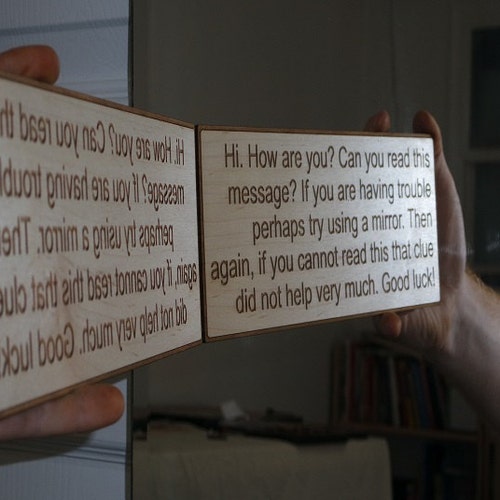 Hi. How are you? Can you read this
message? If you are having trouble
perhaps try using a mirror. Then
again, if you cannot read this that clue
did not help very much. Good luck!
Hi. How are you? Can you read th
message? If you are having troubl
perhaps try using a mirror. The
again, if you cannot read this that clue
did not help very much. Good luck!